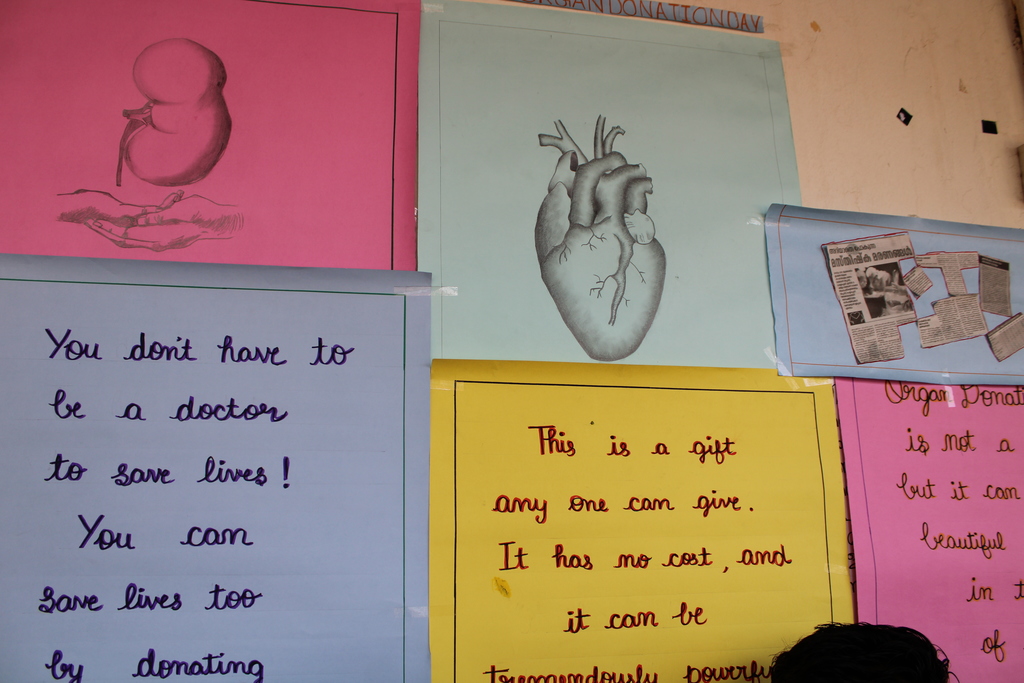 ORGAN DONATION DAY
You don't have to
be a doctor
to save lives!
You can
save lives too
by donating
This is a gift
any one can give.
It has no cost, and
it can be
tremendously
മസ്തിഷ്ക മരണങ്ങൾ
Organ
is not a
but it can
beautiful
in
of